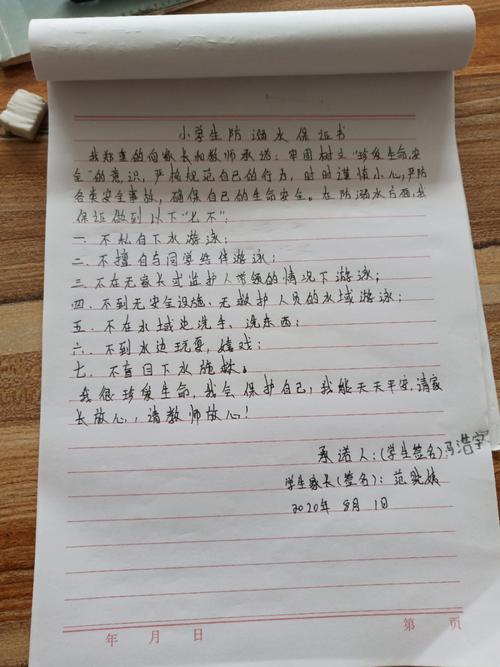 小学生防溺水保证书
我郑重的向家长和教师承诺：牢固树立"珍爱生命，安
全"的意识，严格规范自己的行为，时时谨慎小心，严防
各类安全事故，确保自己的生命安全。在防溺水方面，我
保证做到以下"七不"：
一．不私自下水游泳；
二．不擅自与同学结伴游泳；
三．不在无家长或监护人带领的情况下游泳；
四．不到无安全设施、无救护人员的水域游泳；
五．不在水域边洗手、洗东西；
六．不到水边玩耍、嬉戏；
七．不盲目下水施救。
我很珍爱生命，我会保护自己，我能天天平安，请家
长放心，请教师放心！
承诺人：（学生签名）冯浩宇
学生家长（签名）：范
2020年8月1日
年 月 日 第 页